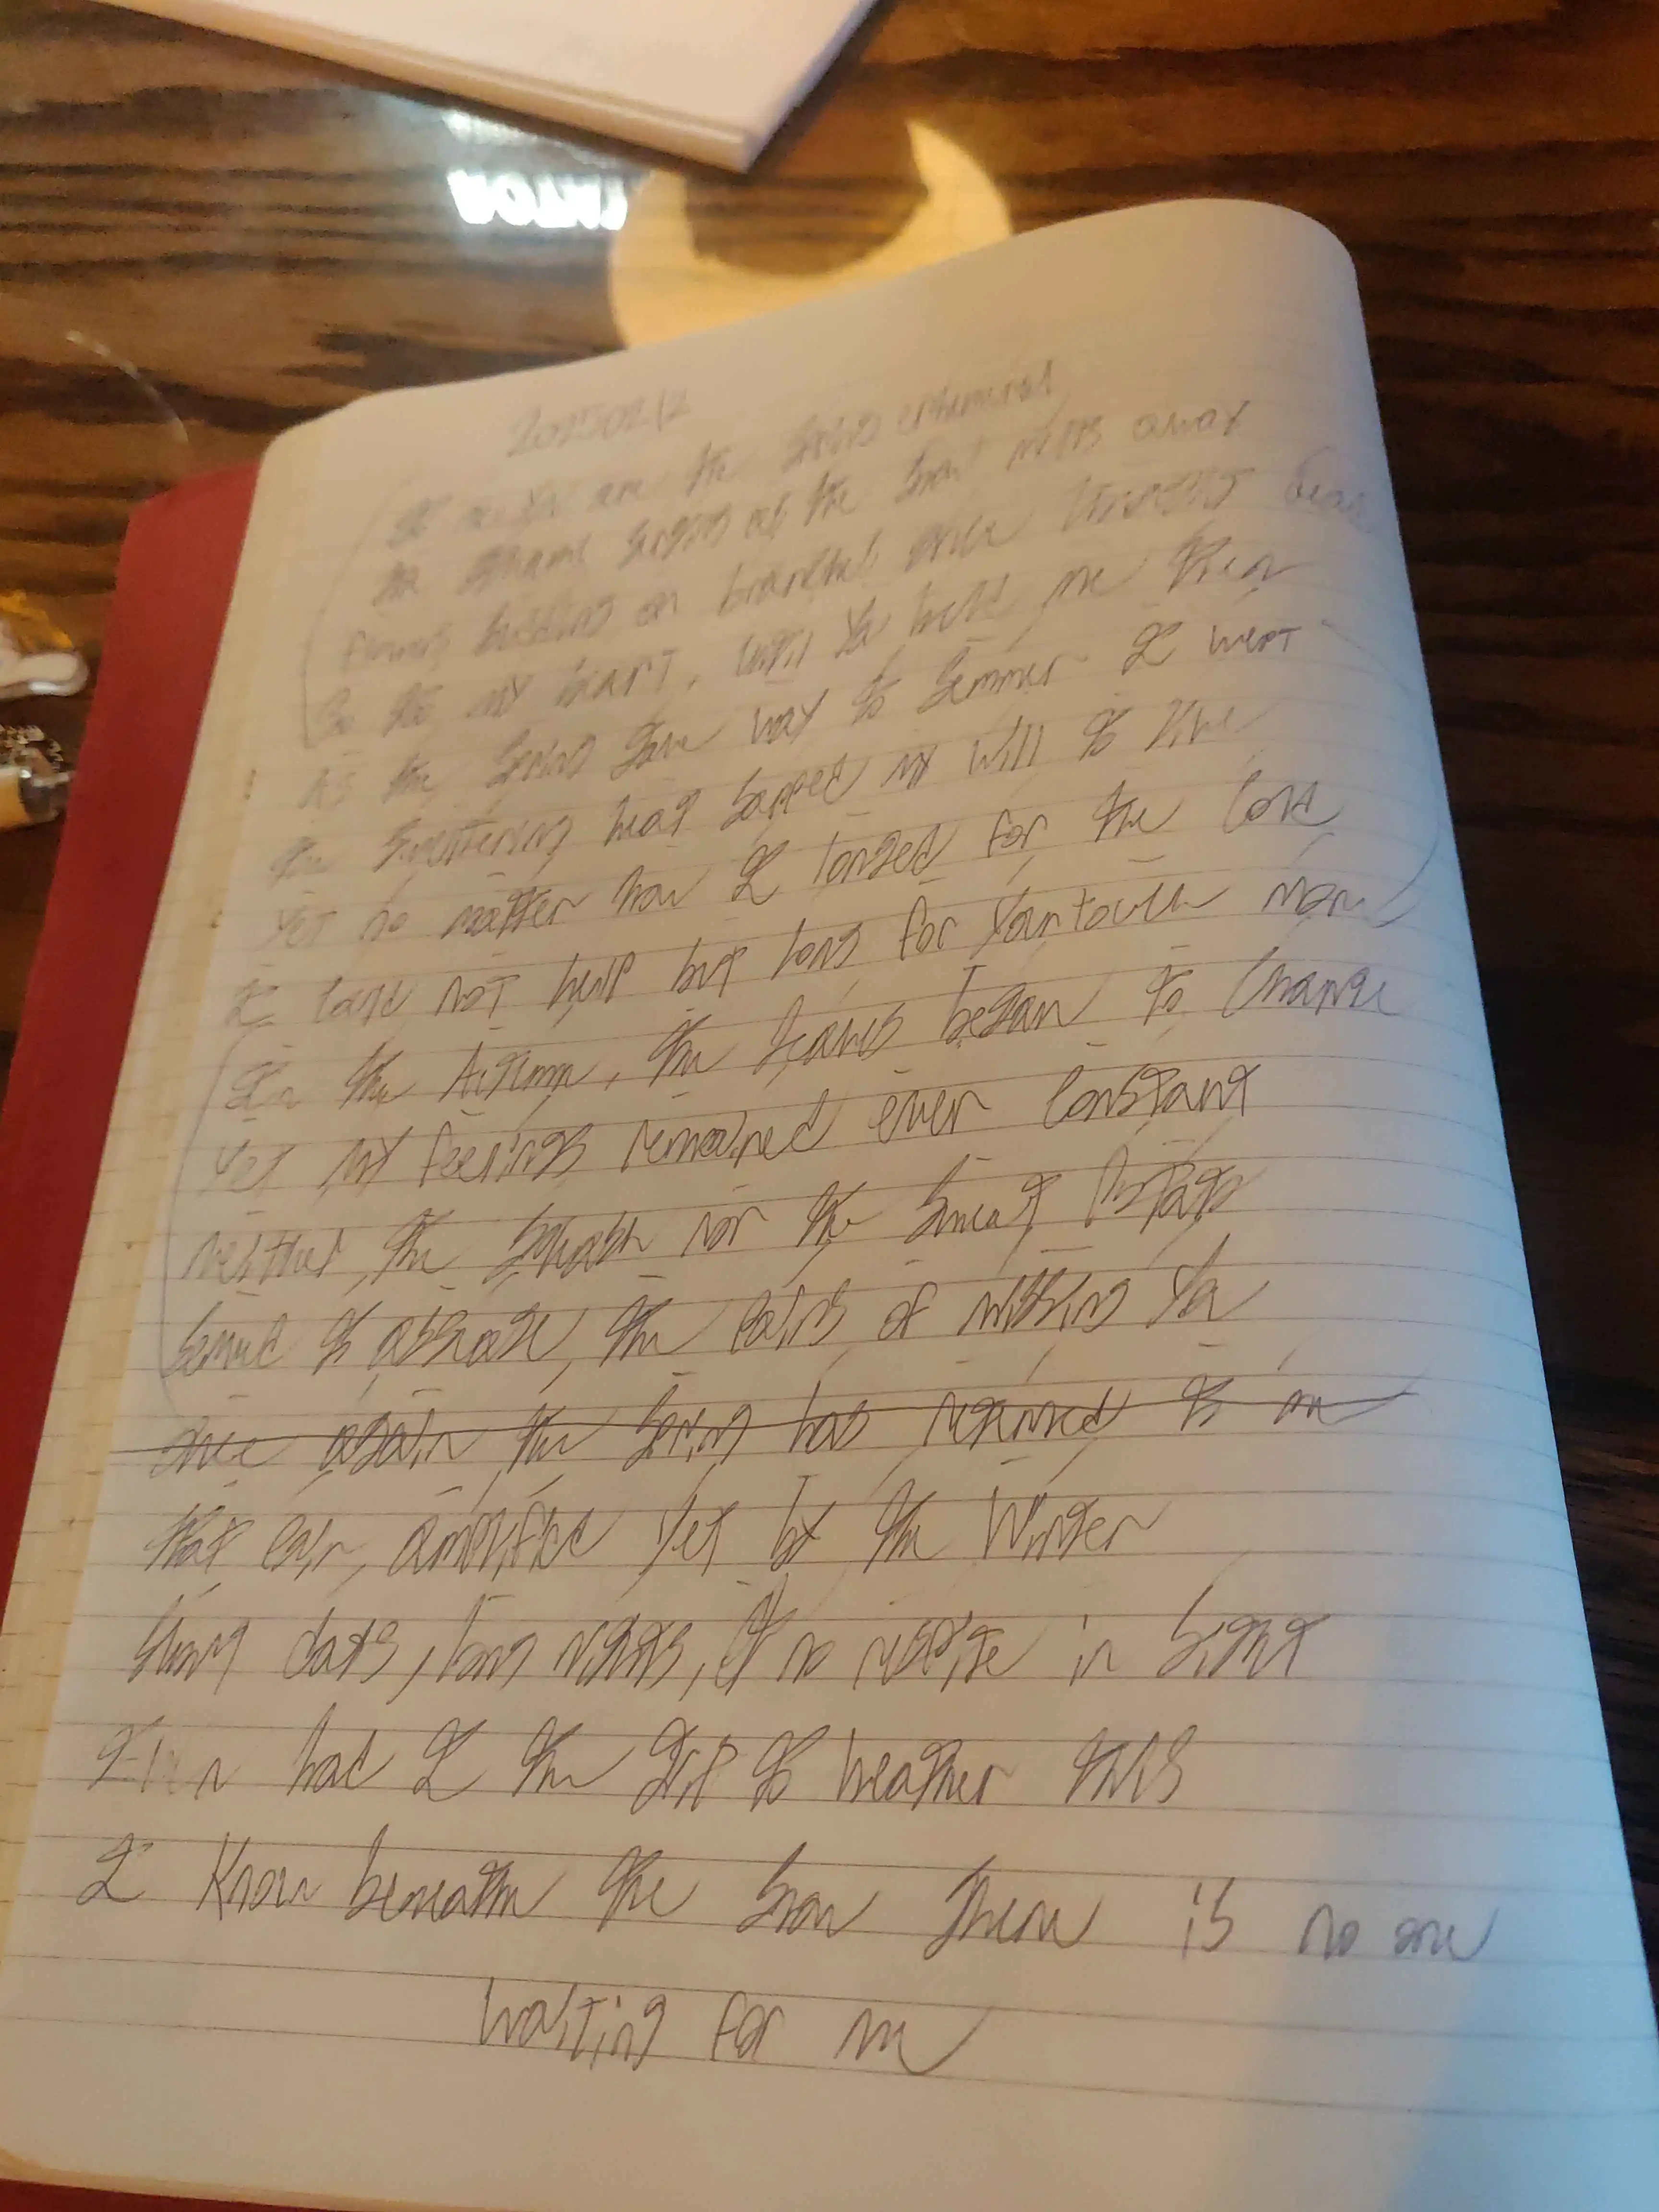 20250212
are the Spring ephemeral
the same as the snow melts away
flowers budding on branches once
So too my heart, until you held me then
As the Spring gave way to Summer I wept
the sweltering heat sapped my will to live
Yet no matter how I longed for the cold
I could not help but long for your touch more
In the Autumn, the leaves began to change
Yet my feelings remained ever constant
neither the squash nor the sweet potato
Served to assuage, the pains of missing you
Once again the Spring has returned to an
that pain, amplified yet by the Winter
Short days, long nights, no respite in sight
Even had I the grit to weather this
I know beneath the snow there is no one
waiting for me